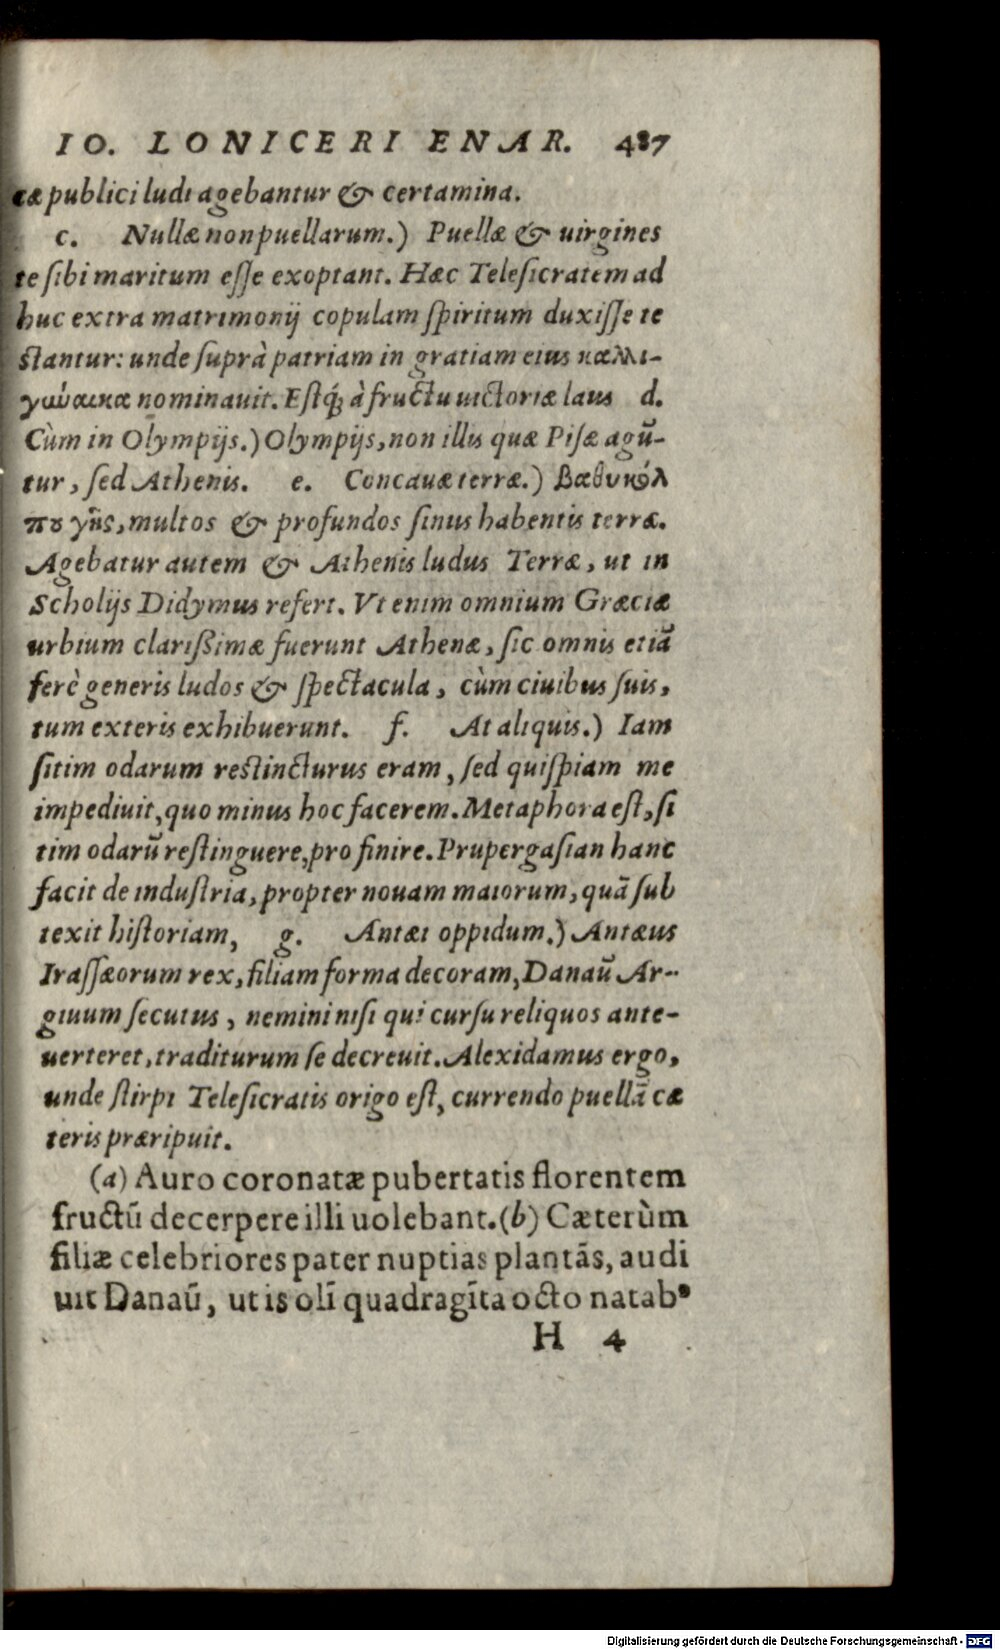 IO. LONICERI ENAR. 487
cæ publici ludi agebantur & certamina.
c. Nullæ non puellarum.) Puellæ & uirgines
te ſibi maritum eſſe exoptant. Hæc Teleſicratem ad
huc extra matrimonij copulam ſpiritum duxiſſe te
ſtantur: unde ſuprà patriam in gratiam eius καλλι-
γύναικα nominauit. Eſtq́; à fructu uictoriæ laus d.
Cùm in Olympijs.) Olympijs, non illis quæ Piſæ agũ-
tur, ſed Athenis. e. Concauæ terræ.) βαθυκόλ
που γῆς, multos & profundos ſinus habentis terræ.
Agebatur autem & Athenis ludus Terræ, ut in
Scholijs Didymus refert. Vt enim omnium Græciæ
urbium clarißimæ fuerunt Athenæ, ſic omnis etiã
ferè generis ludos & ſpectacula, cùm ciuibus ſuis,
tum exteris exhibuerunt. f. At aliquis.) Iam
ſitim odarum reſtincturus eram, ſed quiſpiam me
impediuit, quo minus hoc facerem. Metaphora eſt, ſi
tim odarũ reſtinguere, pro finire. Prupergaſian hanc
facit de induſtria, propter nouam maiorum, quã ſub
texit hiſtoriam, g. Antæi oppidum.) Antæus
Iraſſæorum rex, filiam forma decoram, Danaũ Ar-
giuum ſecutus, nemini niſi qui curſu reliquos ante-
uerteret, traditurum ſe decreuit. Alexidamus ergo,
unde ſtirpi Teleſicratis origo eſt, currendo puellã cæ
teris præripuit.
(a) Auro coronatæ pubertatis florentem
fructũ decerpere illi uolebant. (b) Cæterùm
filiæ celebriores pater nuptias plantãs, audi
uit Danaũ, ut is olĩ quadragĩta octo natabꝰ
H 4
Digitalisierung gefördert durch die Deutsche Forschungsgemeinschaft - DFG